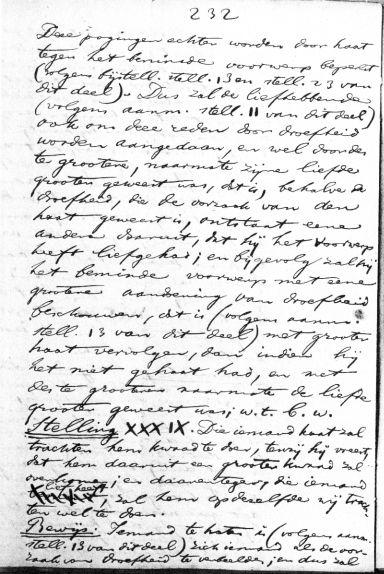 232
Deze pogingen echter worden door haat
tegen het beminde voorwerp beperkt
(volgens bijstell. stell. 13 en stell. 23 van
dit deel). Dus zal de liefhebbende
(volgens aanm. stell. 11 van dit deel)
ook om deze reden door droefheid
worden aangedaan, en wel door des
te grootere, naarmate zijne liefde
grooter geweest was, dit is, behalve de
droefheid, die de oorzaak van den
haat geweest is, ontstaat eene
andere daaruit, dat hij het voorwerp
heeft liefgehad; en bijgevolg zal hij
het beminde voorwerp met eene
grootere aandoening van droefheid
beschouwen, dit is (volgens aanm.
stell. 13 van dit deel) met grooter
haat vervolgen, dan indien hij
het niet gehaat had, en met
des te grooter naarmate de liefde
grooter geweest was; w. t. b. w.
Stelling XXXIX. Die iemand haat zal
trachten hem kwaad te doen, tenzij hij vreest,
dat hem daaruit een grooter kwaad zal
en daarentegen, die iemand
zal hem op dezelfde wijs trach-
ten wel te doen.
Bewijs. Iemand te haten is (volgens aanm.
stell. 13 van dit deel) zich iemand als de oor-
zaak van droefheid te verbeelden; en dus zal